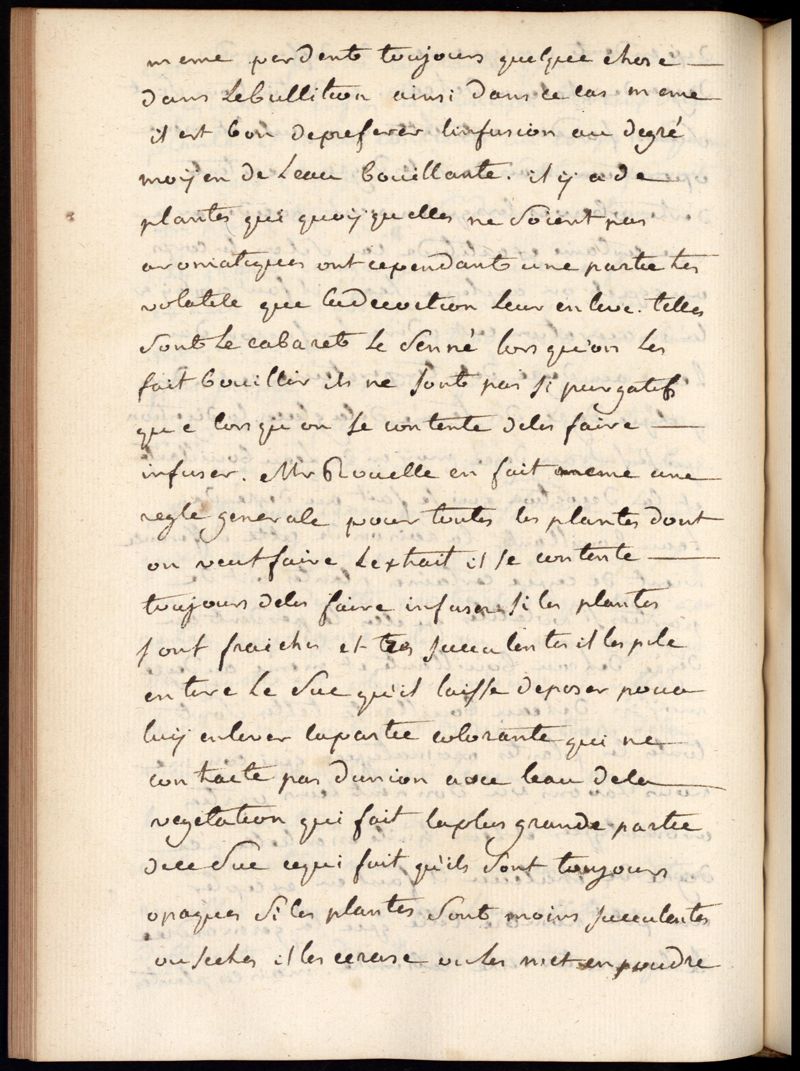 meme perdent toujours quelque chose
dans Lebullition ainsi dans ce cas meme
il est bon depreferer linfusion au degré
moyen de Leau bouillante. il y a de
plantes qui quoyquelles ne soient pas
aromatiques ont cependant une partie tes
volatile que ladecoction leur enleve. telles
sont Le cabaret Le senné lorsqu'on Les
fait bouillir ils ne sont pas si purgatifs
que lorsquon se contente deles faire
infuser. Mr Rouelle en fait meme une
regle generale pour toutes les plantes dont
on veut faire Lextrait il se contente
toujours deles faire infuser. si les plantes
sont fraiches et tres succulentes il les pile
en tire Le suc qu'il laisse deposer pour
luy enlever lapartie colorante qui ne
contracte pas dunion avec leau dela
vegetation qui fait laplus grande partie
dece suc cequi fait qu'ils sont toujours
opaques si les plantes sont moins succulentes
ou seches il les ecrase ou les met en poudre